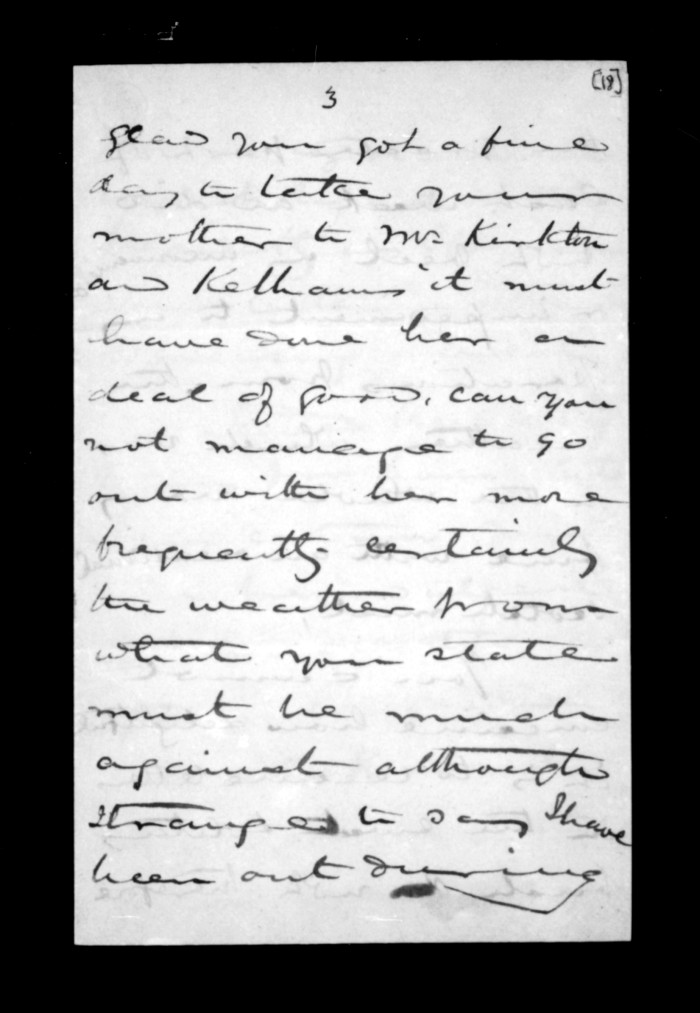 [18]
3
glad you got a fine
day to take your
mother to Mrs Kirkton
and Kelhams it must
have done her a
deal of good, can you
not manage to go
out with her more
frequently certainly
the weather from
what you state
must be much
against although
strange to say I have
been out during